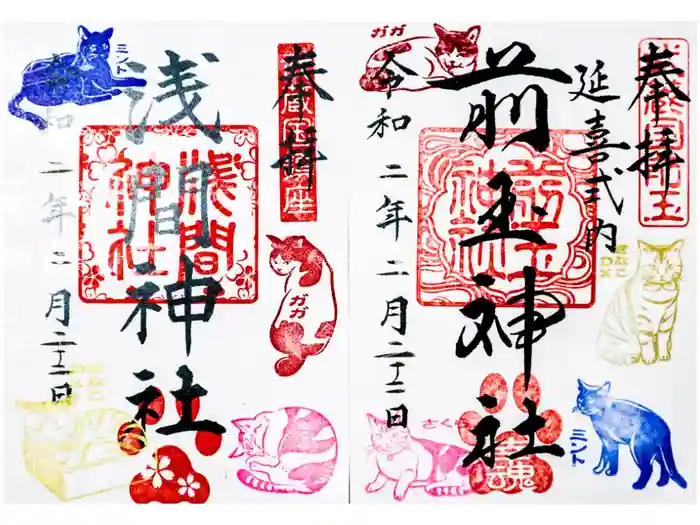 奉拝
延喜式内
前玉神社
令和二年二月二十二日
ガガ
きなこ
ミント
さくら
幸魂
奉拝
浅間神社
浅間神社
令和二年二月二十二日
ミント
ガガ